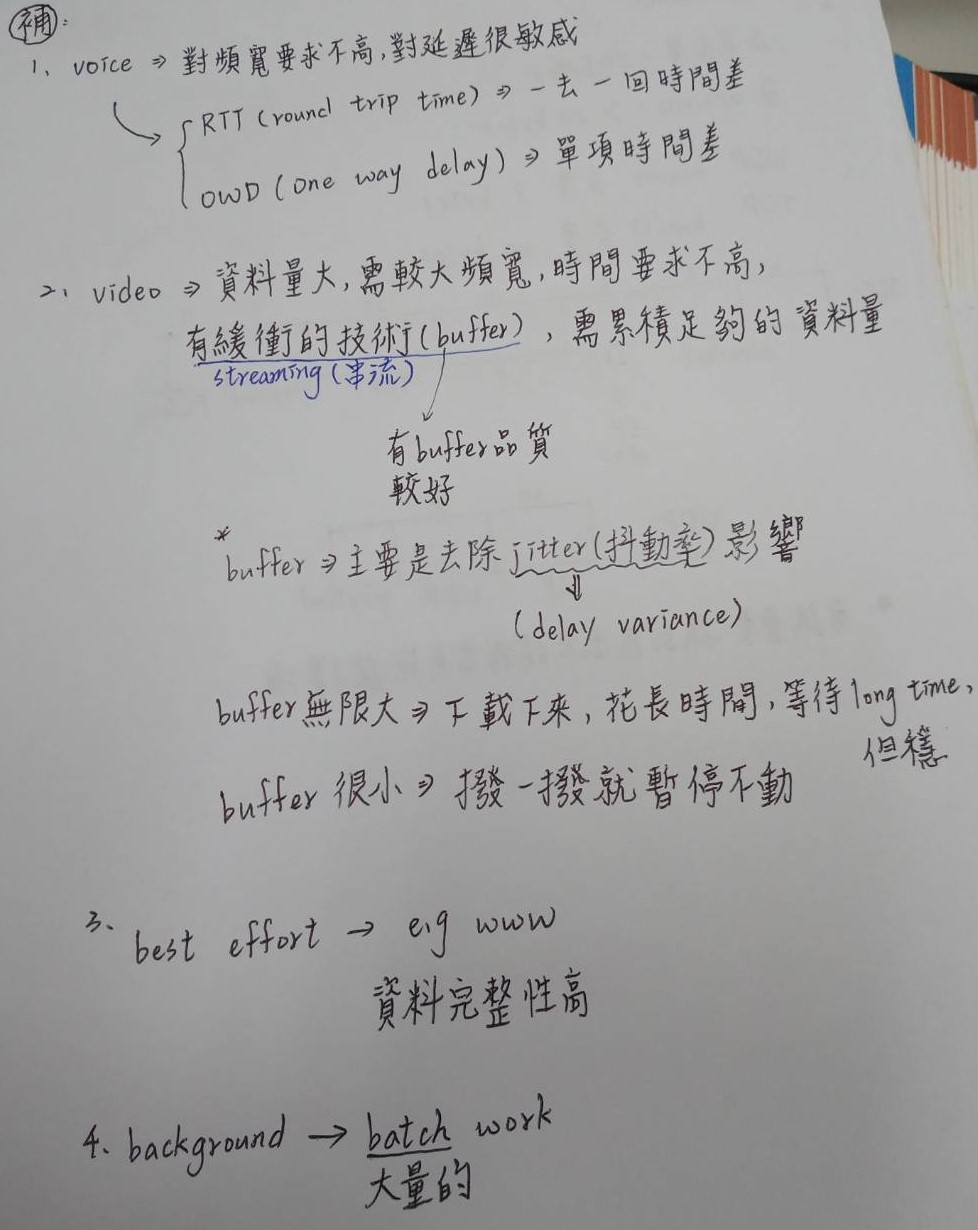 補:
1、voice ⇒ 對頻寬要求不高,對延遲很敏感
RTT (round trip time) ⇒ 一去一回時間差
OWD (one way delay) ⇒ 單項時間差
2、video ⇒ 資料量大,需較大頻寬,時間要求不高,
有緩衝的技術(buffer),需累積足夠的資料量
streaming(串流)
有buffer品質
較好
* buffer ⇒ 主要是去除jitter(抖動率)影響
⇓
(delay variance)
buffer無限大 ⇒ 下載下來,花長時間,等待long time、
但穩
buffer很小 ⇒ 撥一撥就暫停不動
3、best effort → e.g www
資料完整性高
4、background → batch work
大量的